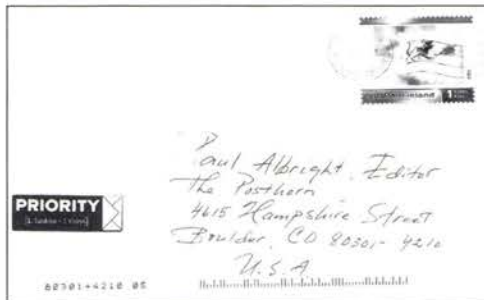 1
Paul Albright, Editor
The Posthorn
4615 Hampshire Street
Boulder, CO 80301-4210
U.S.A
PRIORITY
80301+4210 05